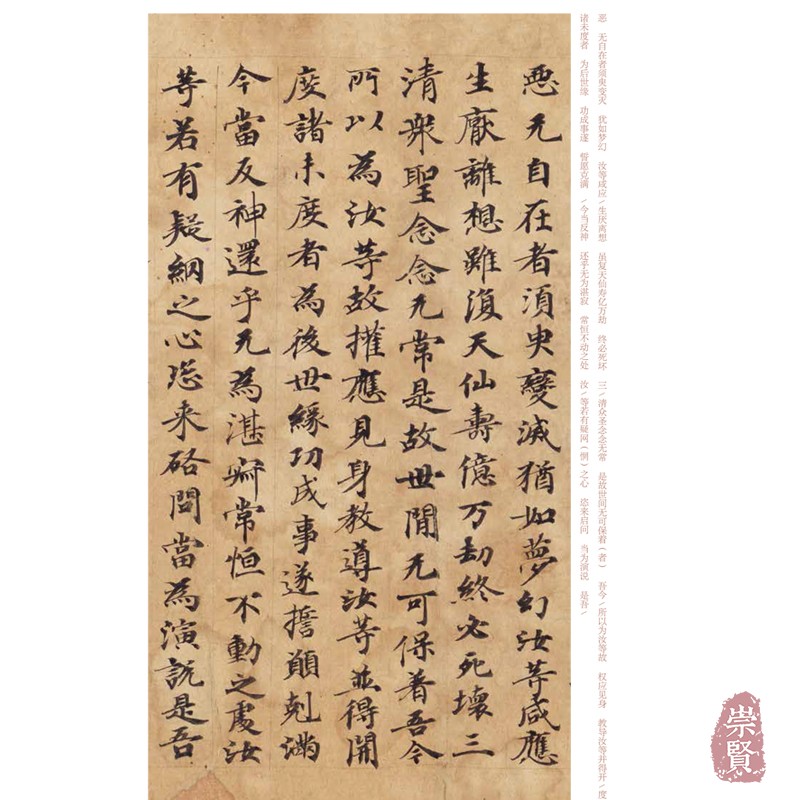 恶 无自在者须臾变灭 犹如梦幻 汝等咸应/生厌离想 虽复天仙寿亿万劫 终必死坏 三/清众圣念念无常 是故世间无可保着(者) 吾今/所以为汝等故 权应见身 教导汝等并得开/度
诸未度者 为后世缘 功成事遂 誓愿克满 /今当反神 还乎无为湛寂 常恒不动之处 汝/等若有疑网(惘)之心 恣来启问 当为演说 是吾/
惡无自在者須臾變滅猶如夢幻汝等咸應
生厭離想雖復天仙壽億万劫終必死壞三
清衆聖念念无常是故世間无可保着吾今
所以為汝等故權應見身教導汝等並得開
度諸未度者為後世緣功成事遂誓願剋滿
今當反神還乎无為湛寂常恒不動之處汝
等若有疑網之心恣来啓問當為演説是吾
崇賢